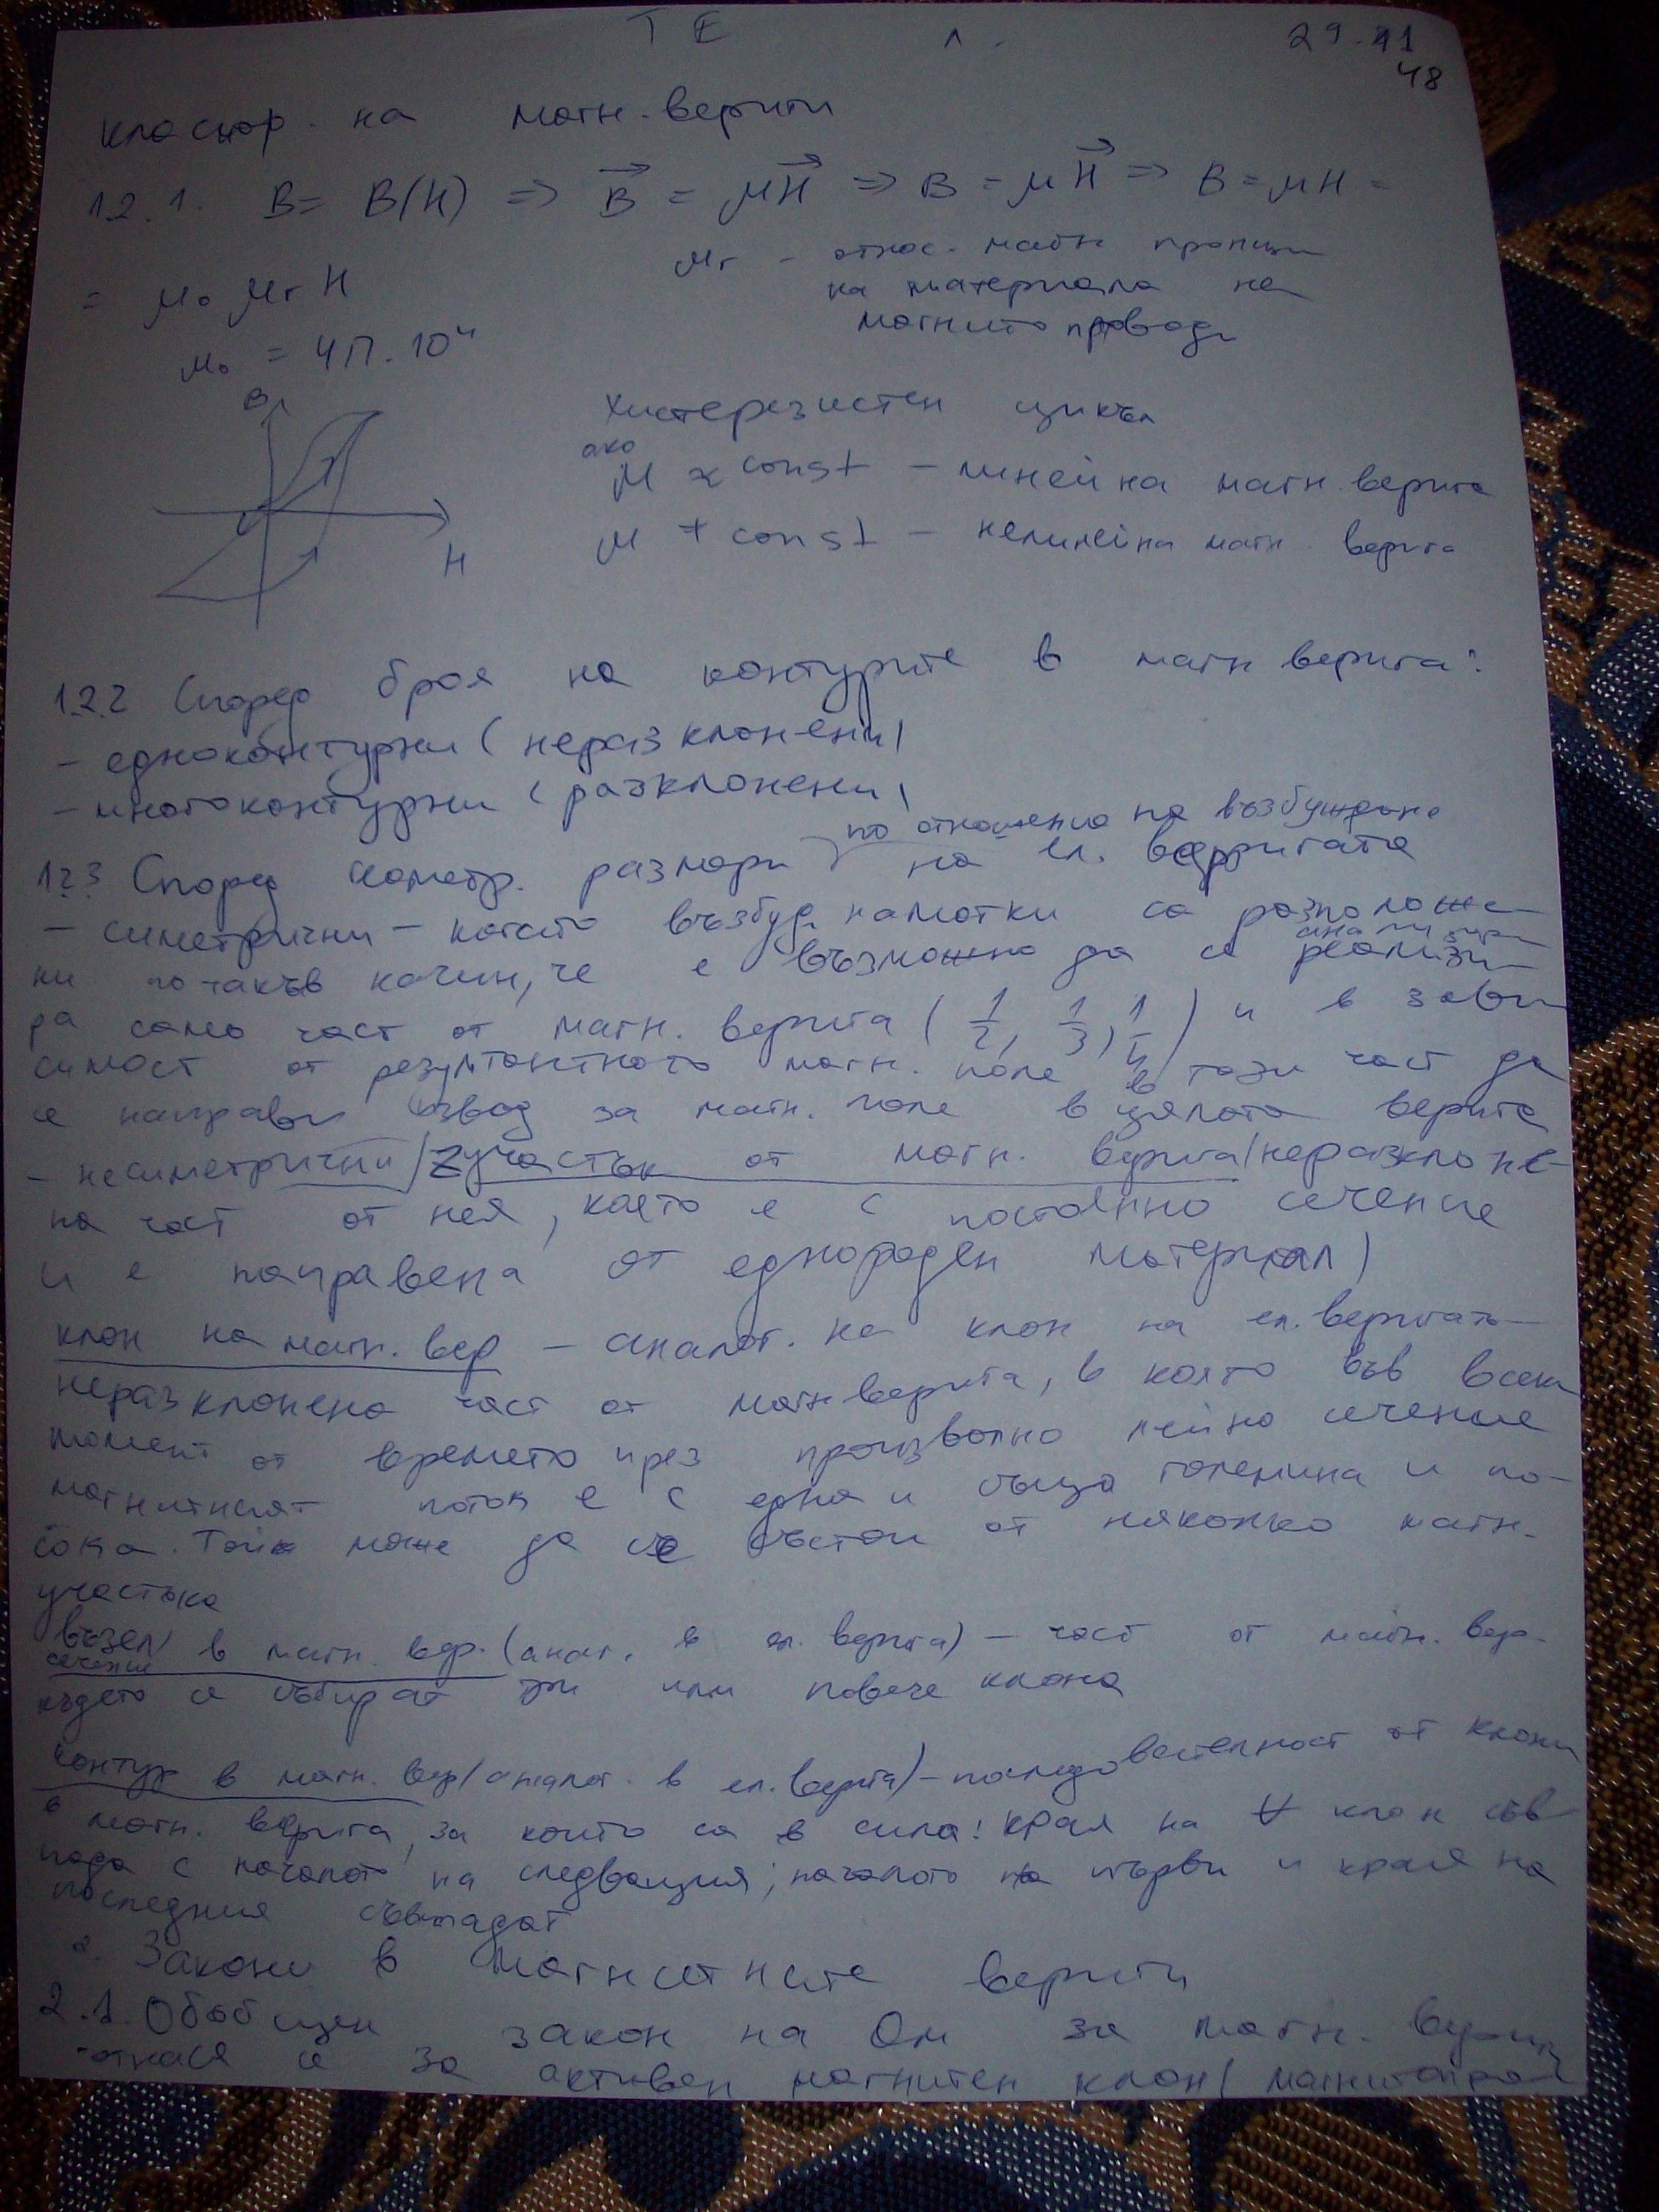 ТЕ л. 29.11
48
класиф. на магн. вериги
1.2.1. B = B(H) => B = μH => B = μH => B = μH =
= μ₀ μr H
μr - относ. магн прониц
на материала на
магнитопровода
μ₀ = 4П.10⁴
B
H
Хистерезистен цикъл
ако
μ ≈ const - линейна магн. верига
μ ≠ const - нелинейна магн. верига
1.2.2 Според броя на контурите в магн верига:
- едноконтурни (неразклонени)
- многоконтурни (разклонени)
по отношение на възбуждане
1.2.3 Според геометр. размери на ел. веригата
- симетрични - когато възбуд. намотки са разположе-
анализира
ни по такъв начин, че е възможно да се реализи-
ра само част от магн. верига (1/2, 1/3, 1/4) и в зави
симост от резултантното магн. поле в тази част да
се направи извод за магн. поле в цялата верига
- несиметрични / участък от магн. верига (неразклоне-
на част от нея, която е с постоянно сечение
и е направена от еднороден материал)
клон на магн. вер - аналог. на клон на ел. веригата -
неразклонена част от магн верига, в която във всеки
момент от времето през произволно нейно сечение
магнитният поток е с една и съща големина и по-
сока. Той може да се състои от няколко магн.
участъка
възел в магн. вер. (анал. в ел. верига) - част от магн. вер.
сечение
където се събират три или повече клона
контур в магн. вер (аналог. в ел. верига) - последователност от клони
в магн. верига, за които са в сила: края на ∀ клон съв
пада с началото на следващия; началото на първи и края на
последния съвпадат
2. Закони в магнитните вериги
2.1. Обобщен закон на Ом за магн. вериги
отнася се за активен магнитен клон (